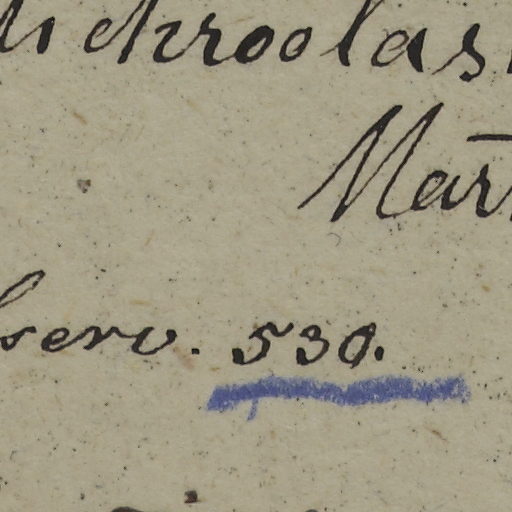 chroolas
Mart
serv. 530.